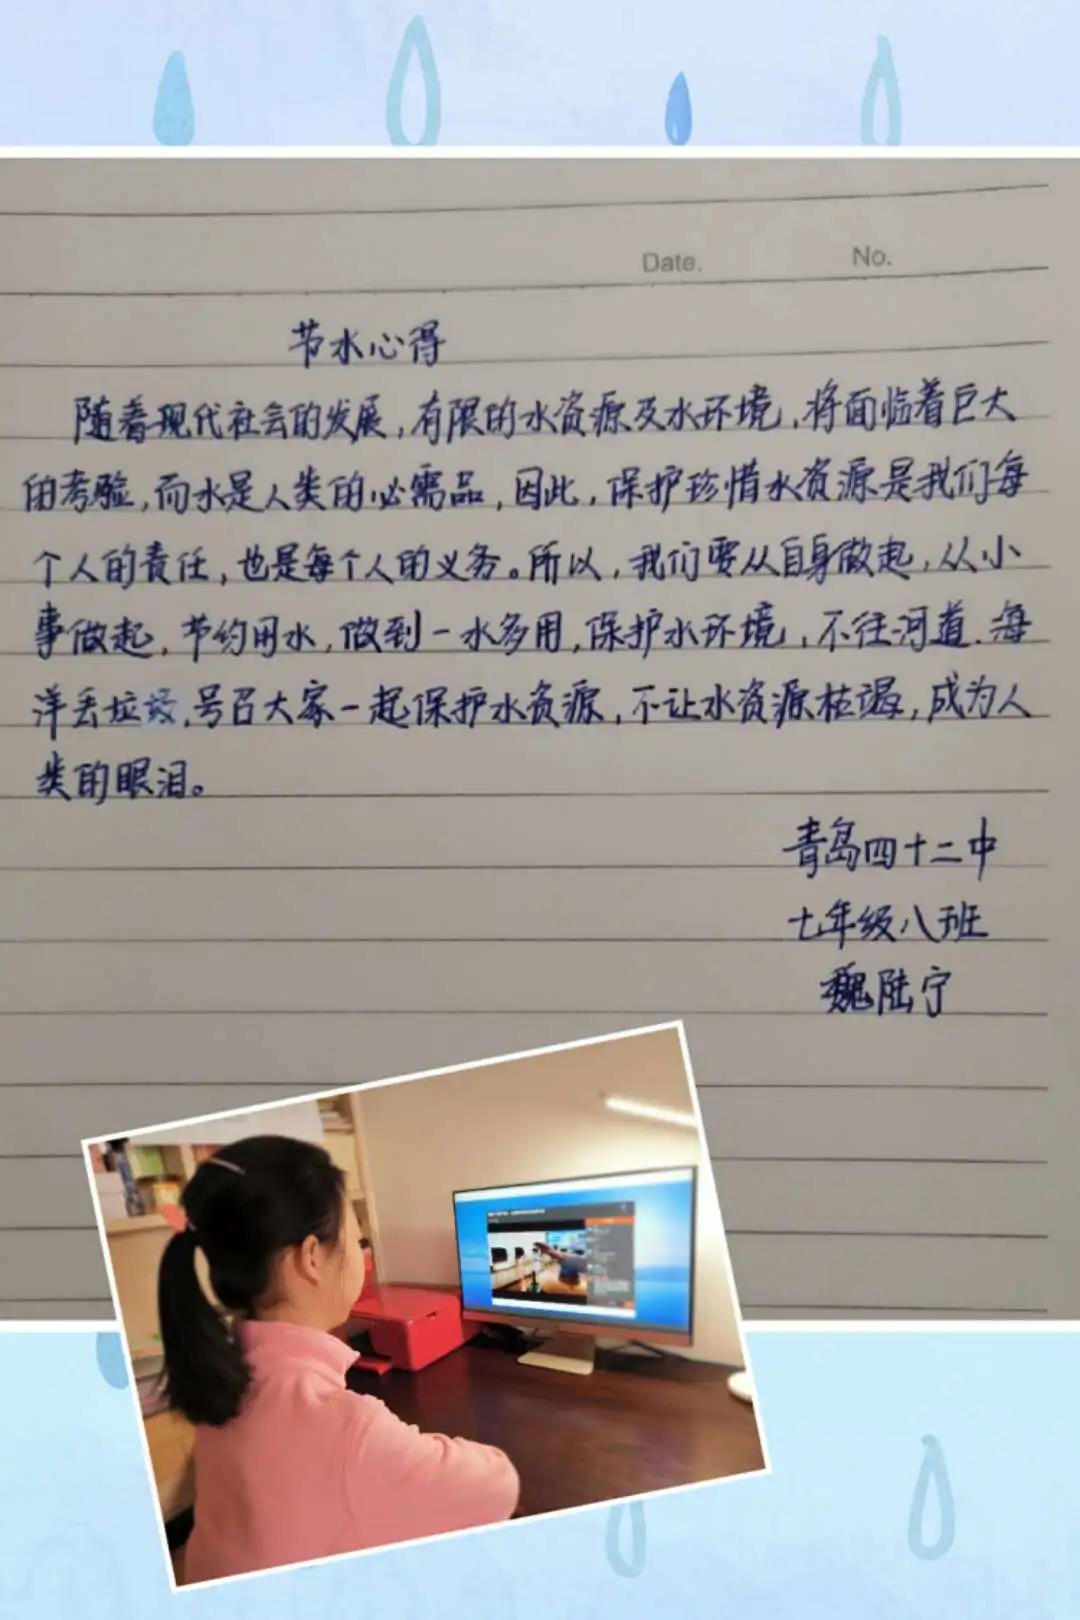 Date.
No.
节水心得
随着现代社会的发展,有限的水资源及水环境,将面临着巨大
的考验,而水是人类的必需品,因此,保护珍惜水资源是我们每
个人的责任,也是每个人的义务。所以,我们要从自身做起,从小
事做起,节约用水,做到一水多用,保护水环境,不往河道、海
洋丢垃圾,号召大家一起保护水资源,不让水资源枯竭,成为人
类的眼泪。
青岛四十二中
七年级八班
魏陆宁